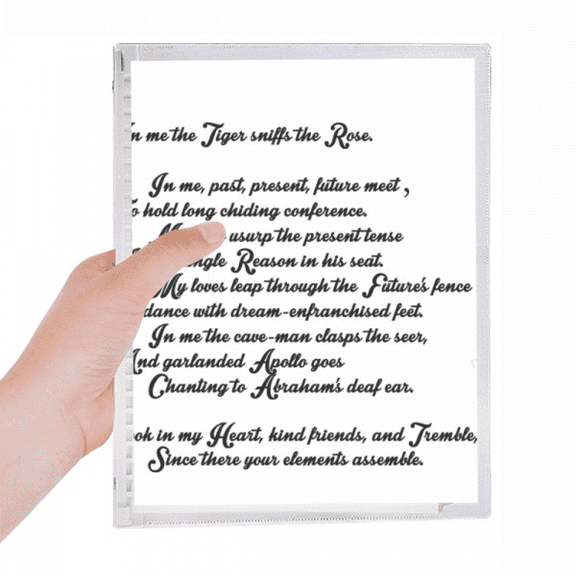 In me the Tiger sniffs the Rose.
In me, past, present, future meet ,
To hold long chiding conference.
usurp the present tense
Reason in his seat.
My loves leap through the Future's fence
dance with dream-enfranchised feet.
In me the cave-man clasps the seer,
And garlanded Apollo goes
Chanting to Abraham's deaf ear.
in my Heart, kind friends, and Tremble,
Since there your elements assemble.